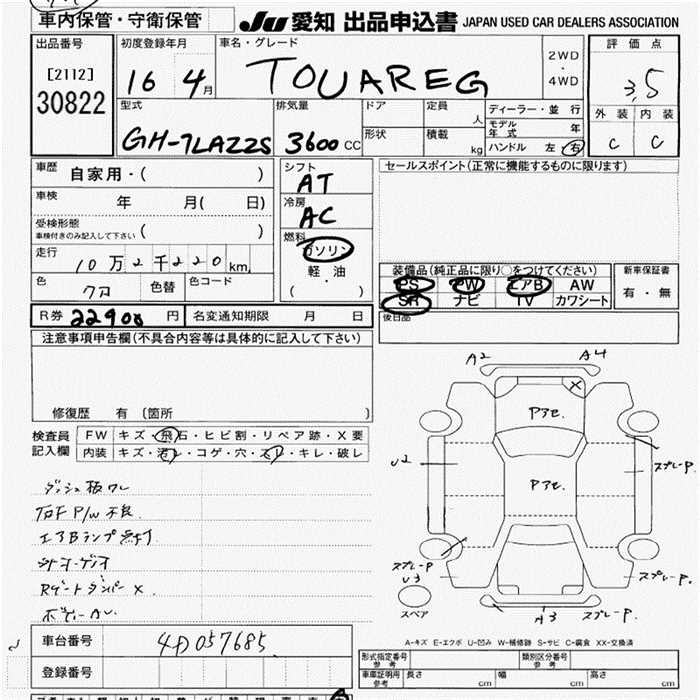 車内保管・守衛保管
JU 愛知 出品申込書 JAPAN USED CAR DEALERS ASSOCIATION
出品番号
[2112]
30822
初度登録年月
16 4月
車名・グレード
TOUAREG
2WD
・
4WD
評価点
3.5
外装 内装
C C
型式
GH-7LAZZS
排気量
3600 CC
ドア
形状
定員
人
積載
kg
ディーラー・並行
モデル年式 年
ハンドル 左 右
車歴 自家用・( )
車検 年 月( 日)
受検形態
車検付きのみ記入して下さい ( )
走行 10万2千220 km
色 色替 色コード
シフト
AT
冷房
AC
燃料
ガソリン
軽・油
( ・ )
セールスポイント(正常に機能するものに限ります)
装備品(純正品に限り○をつけてください)
PS PW エアB AW
SR ナビ TV カワシート
新車保証書
有・無
後日品
R券 22900 円 名変通知期限 月 日
注意事項申告欄(不具合内容等は具体的に記入して下さい)
修復歴 有 [箇所 ]
検査員
記入欄
FW キズ・飛石・ヒビ割・リペア跡・X要
内装 キズ・汚レ・コゲ・穴・スレ・キレ・破レ
ダッシュ板ワレ
P/W 不良
エアBランプ点灯
Rゲートダンパー X
A2 A4
X
Pアセ.
U2
Pアセ.
スプレーP.
スプレーP
U3
スプレーP.
スペア
A3 スプレーP.
A-キズ E-エクボ U-凹み W-補修跡 S-サビ C-腐食 XX-交換済
車台番号 4D057685
登録番号
型式指定番号
参考
類別区分番号
参考
車庫証明用
参考
長さ cm 幅 cm 高さ cm